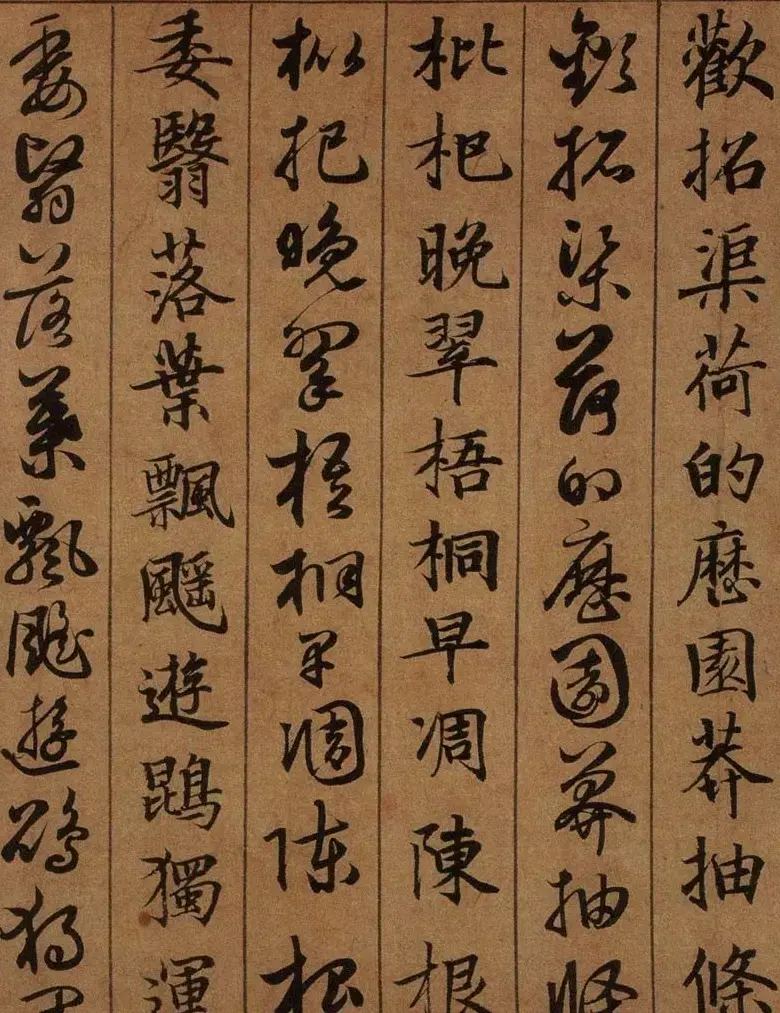 歡招渠荷的歷園莽抽條
歡招渠荷的歷園莽抽條
枇杷晚翠梧桐早凋陳根
枇杷晚翠梧桐早凋陳根
委翳落葉飄颻遊鵾獨運
委翳落葉飄颻遊鵾獨